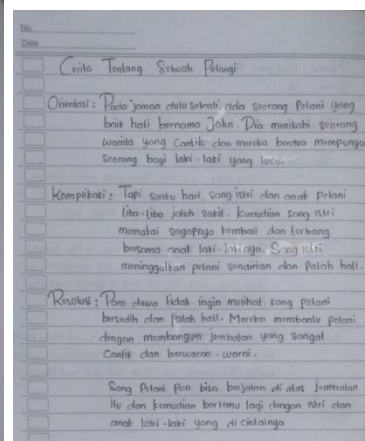 No.
Date
Cerita Tentang Sebuah Pelangi
Orientasi : Pada jaman dulu sekali, ada seorang Petani yang
baik hati bernama John. Dia menikahi seorang
wanita yang Cantik dan mereka berdua mempunyai
seorang bayi laki-laki yang lucu.
Komplikasi : Tapi suatu hari, sang istri dan anak Petani
tiba-tiba jatuh sakit. Kemudian sang istri
memakai sayapnya kembali dan terbang
bersama anak laki-lakinya. Sang istri
meninggalkan petani sendirian dan Patah hati.
Resolusi : Para dewa tidak ingin melihat sang petani
bersedih dan Patah hati. Mereka membantu petani
dengan membangun jembatan yang sangat
Cantik dan berwarna-warni.
Sang Petani Pun bisa berjalan di atas jembatan
itu dan kemudian bertemu lagi dengan istri dan
anak laki-laki yang di cintainya